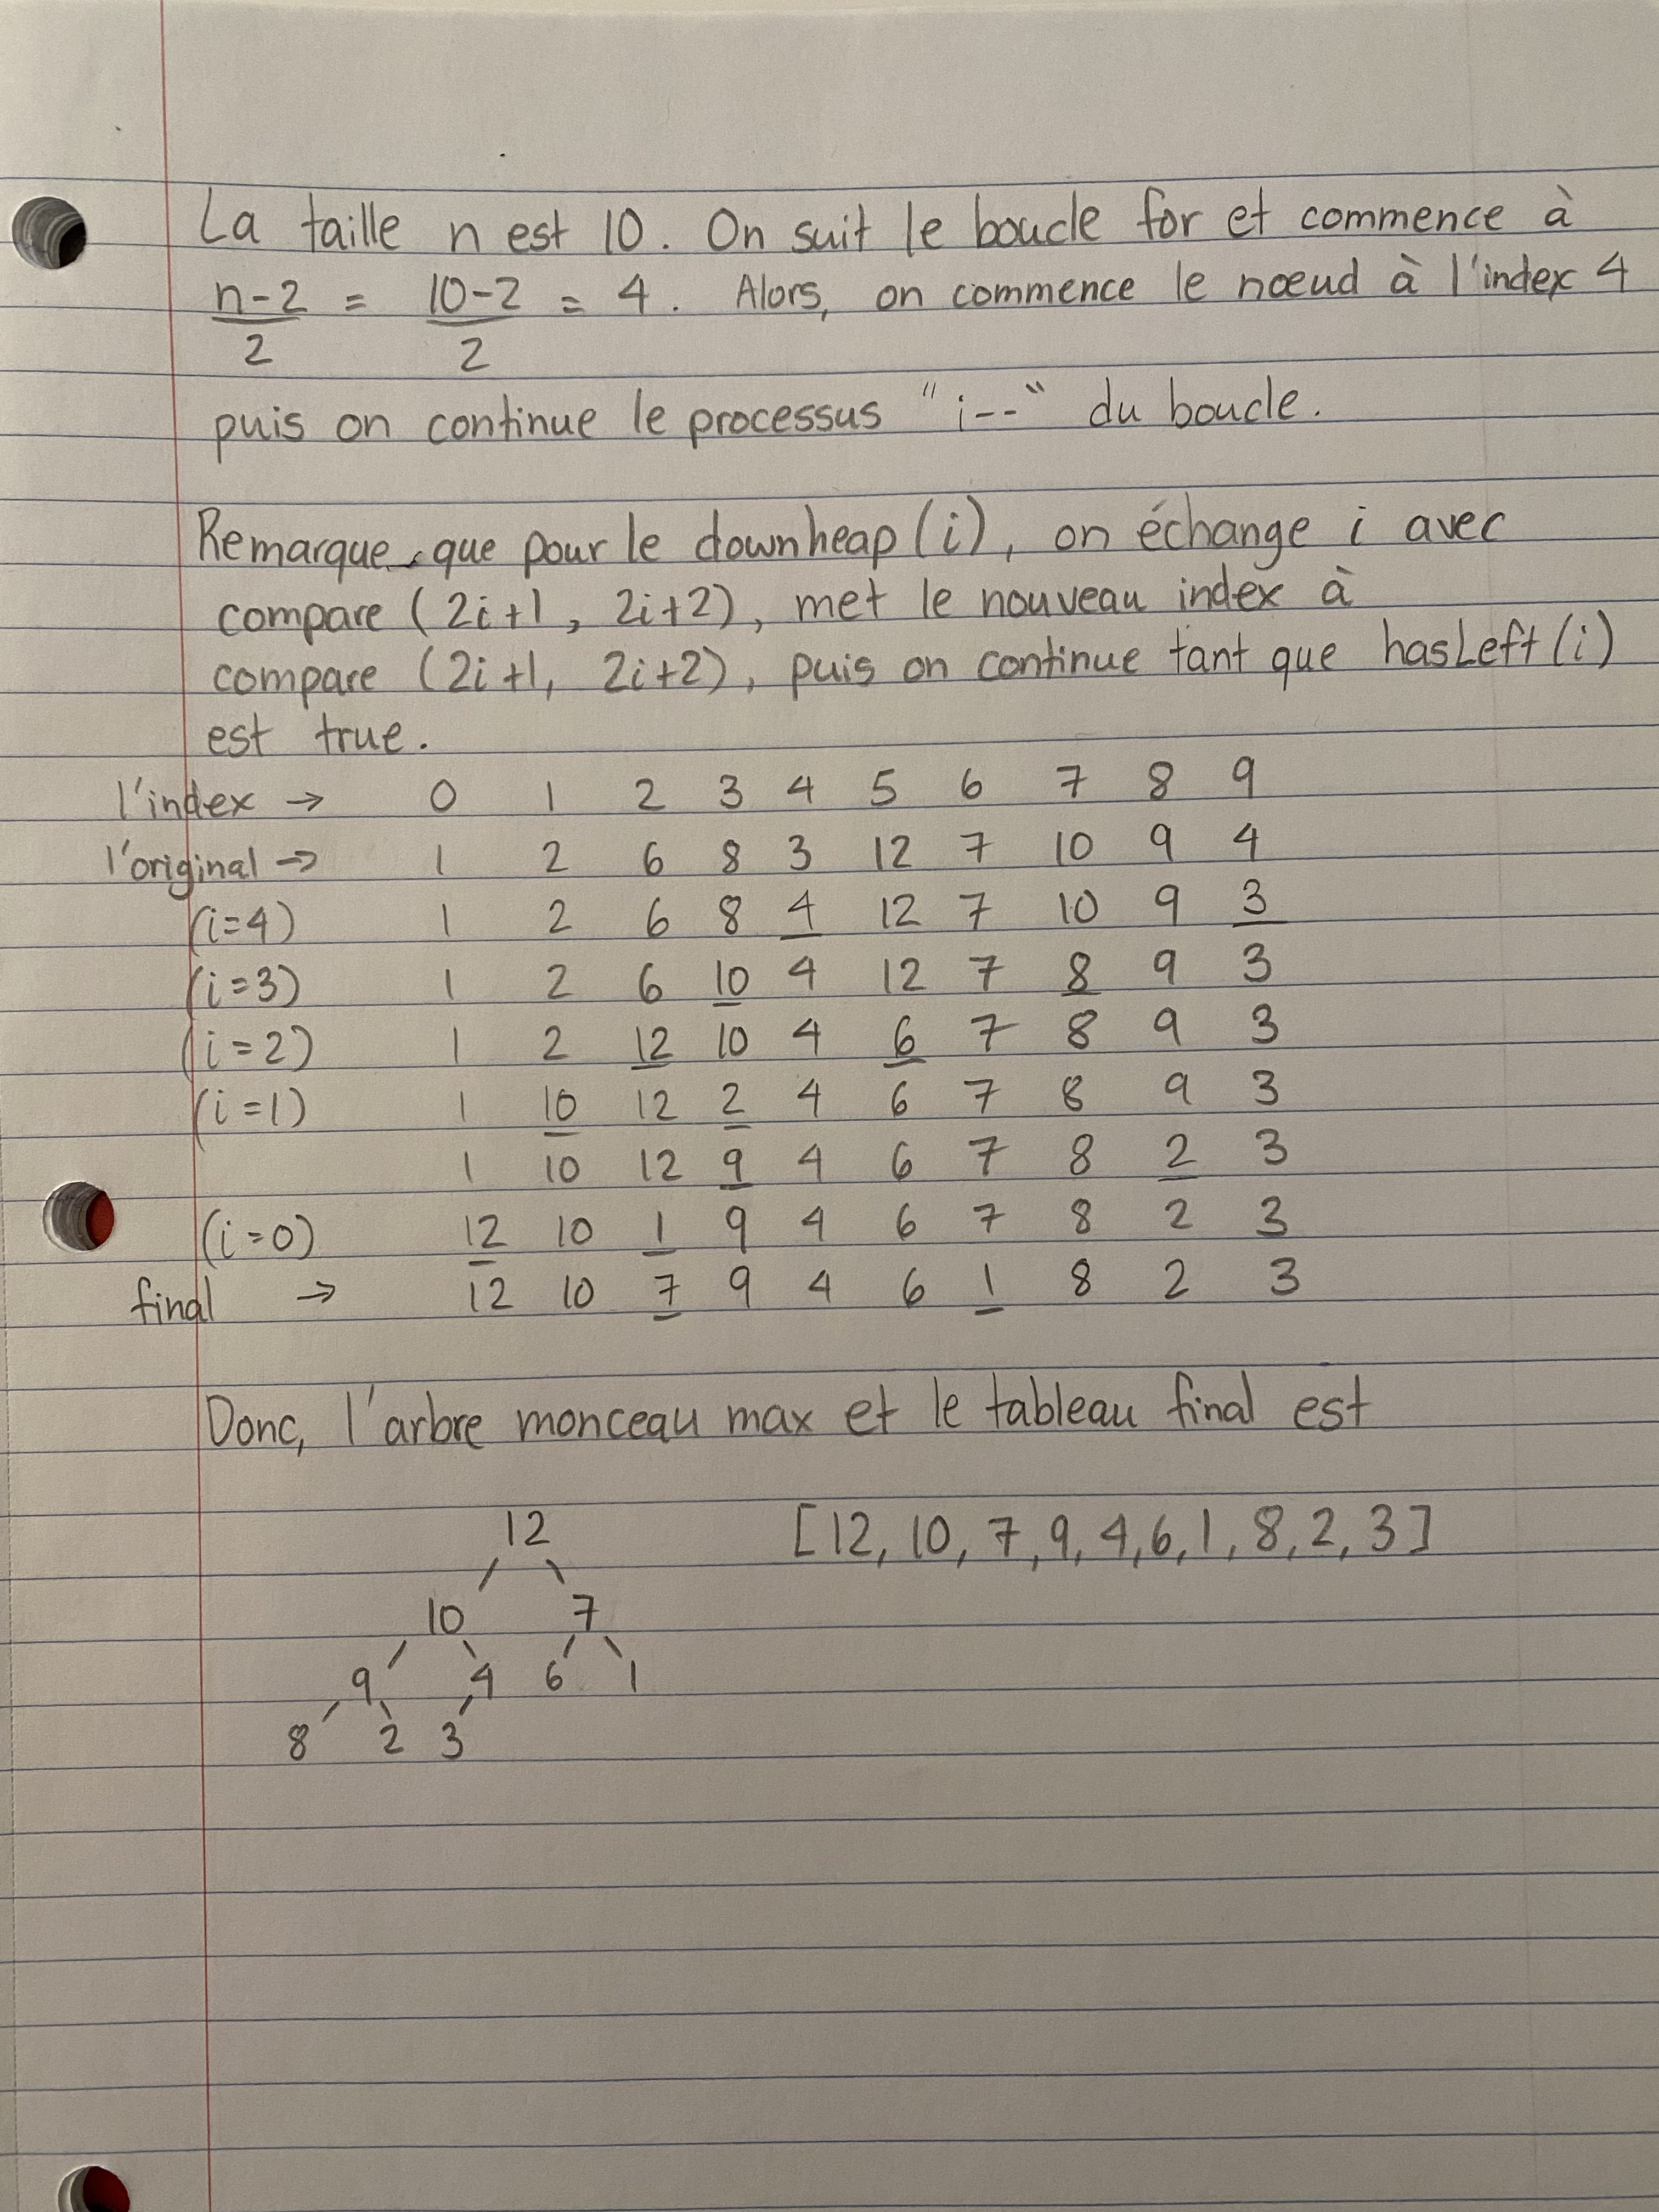 La taille n est 10. On suit le boucle for et commence à
n-2 = 10-2 = 4. Alors, on commence le nœud à l'index 4
2 2
puis on continue le processus "i--" du boucle.
Remarque que pour le downheap(i), on échange i avec
compare (2i+1, 2i+2), met le nouveau index à
compare (2i+1, 2i+2), puis on continue tant que hasLeft(i)
est true.
l'index → 0 1 2 3 4 5 6 7 8 9
l'original → 1 2 6 8 3 12 7 10 9 4
(i=4) 1 2 6 8 4 12 7 10 9 3
(i=3) 1 2 6 10 4 12 7 8 9 3
(i=2) 1 2 12 10 4 6 7 8 9 3
(i=1) 1 10 12 2 4 6 7 8 9 3
1 10 12 9 4 6 7 8 2 3
(i=0) 12 10 1 9 4 6 7 8 2 3
final → 12 10 7 9 4 6 1 8 2 3
Donc, l'arbre monceau max et le tableau final est
12 [12, 10, 7, 9, 4, 6, 1, 8, 2, 3]
10 7
9 4 6 1
8 2 3